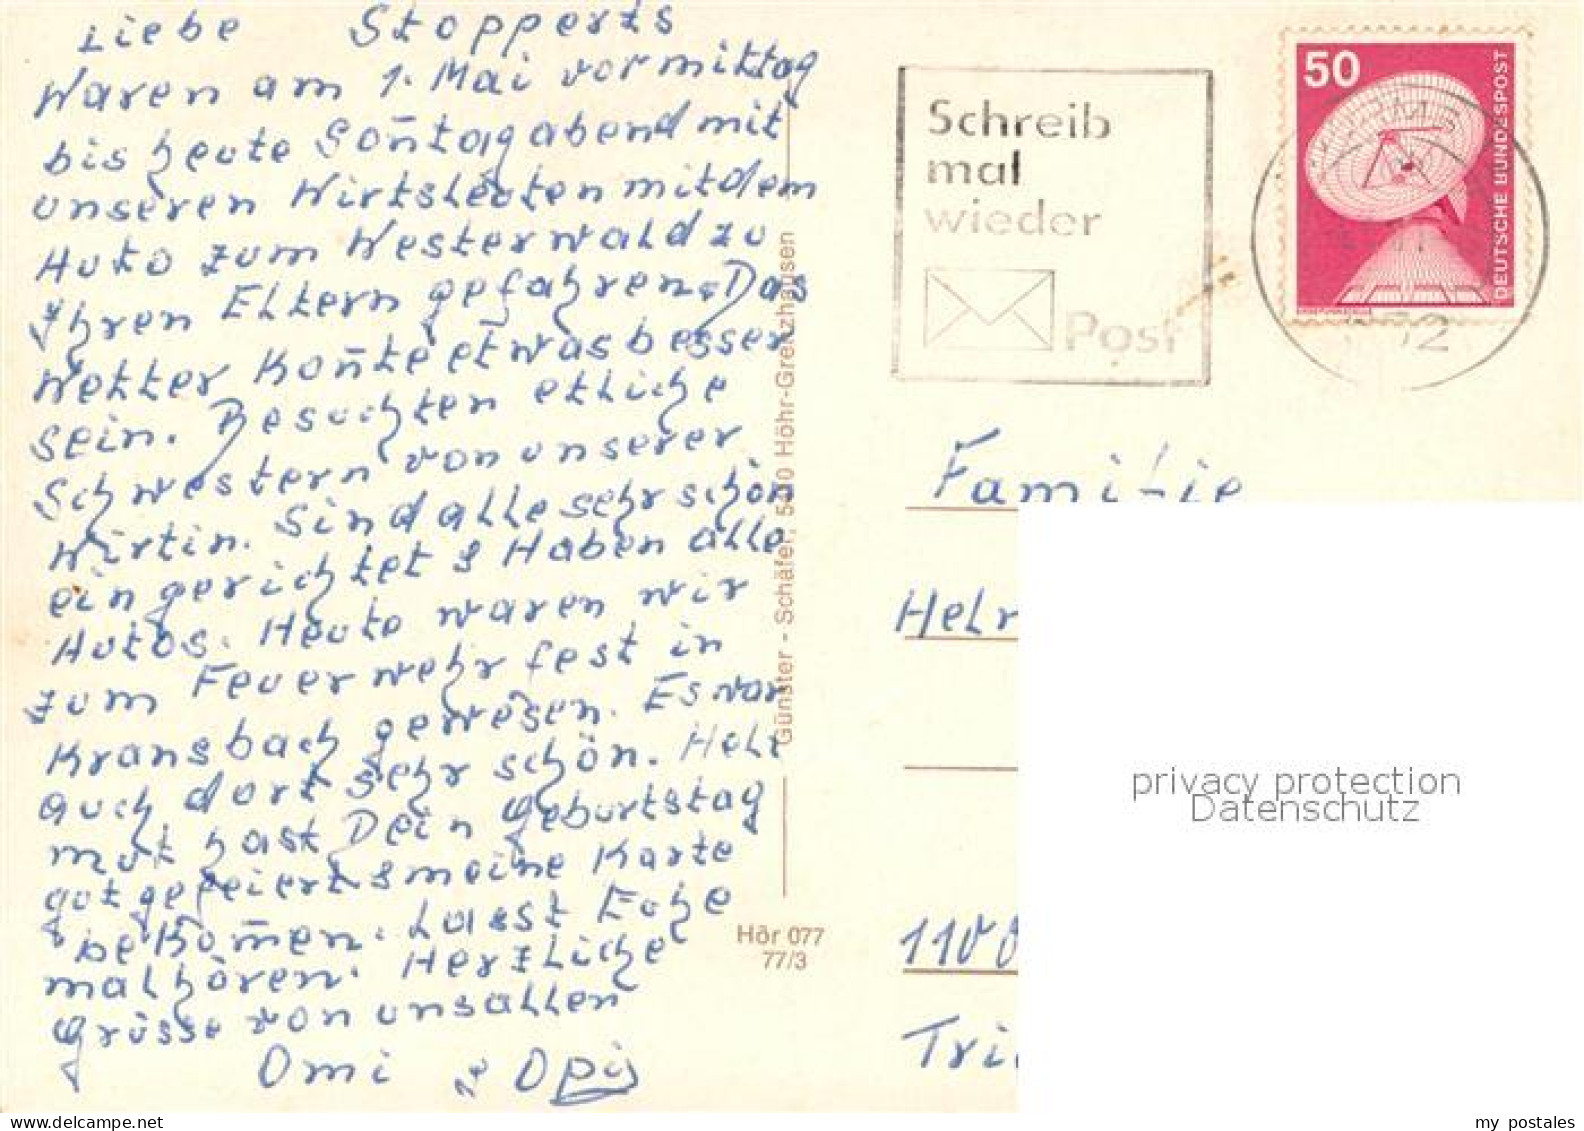 Liebe Stopperts
Waren am 1. Mai vormittag
bis heute Son̄tag abend mit
unseren Wirtsleuten mit dem
Auto zum Westerwald zu
Ihren Eltern gefahren. Das
Wetter kon̄te etwas besser
sein. Besuchten etliche
Schwestern von unserer
Wirtin. Sind alle sehr schön
ein gerichtet & Haben alle
Autos. Heute waren wir
zum Feuerwehrfest in
Kransbach gewesen. Es war
auch dort sehr schön. Hel
mut hast Dein Geburtstag
gut gefeiert & meine Karte
bekom̄en. Lasst Euche
mal hören. Herzliche
Grüsse von uns allen
Omi u Opi
Günster - Schäfer, 5410 Höhr-Grenzhausen
Hör 077
77/3
Schreib
mal
wieder
Post
50
DEUTSCHE BUNDESPOST
Familie
Helm
1100
Tri
privacy protection
Datenschutz
delcampe.net
my postales